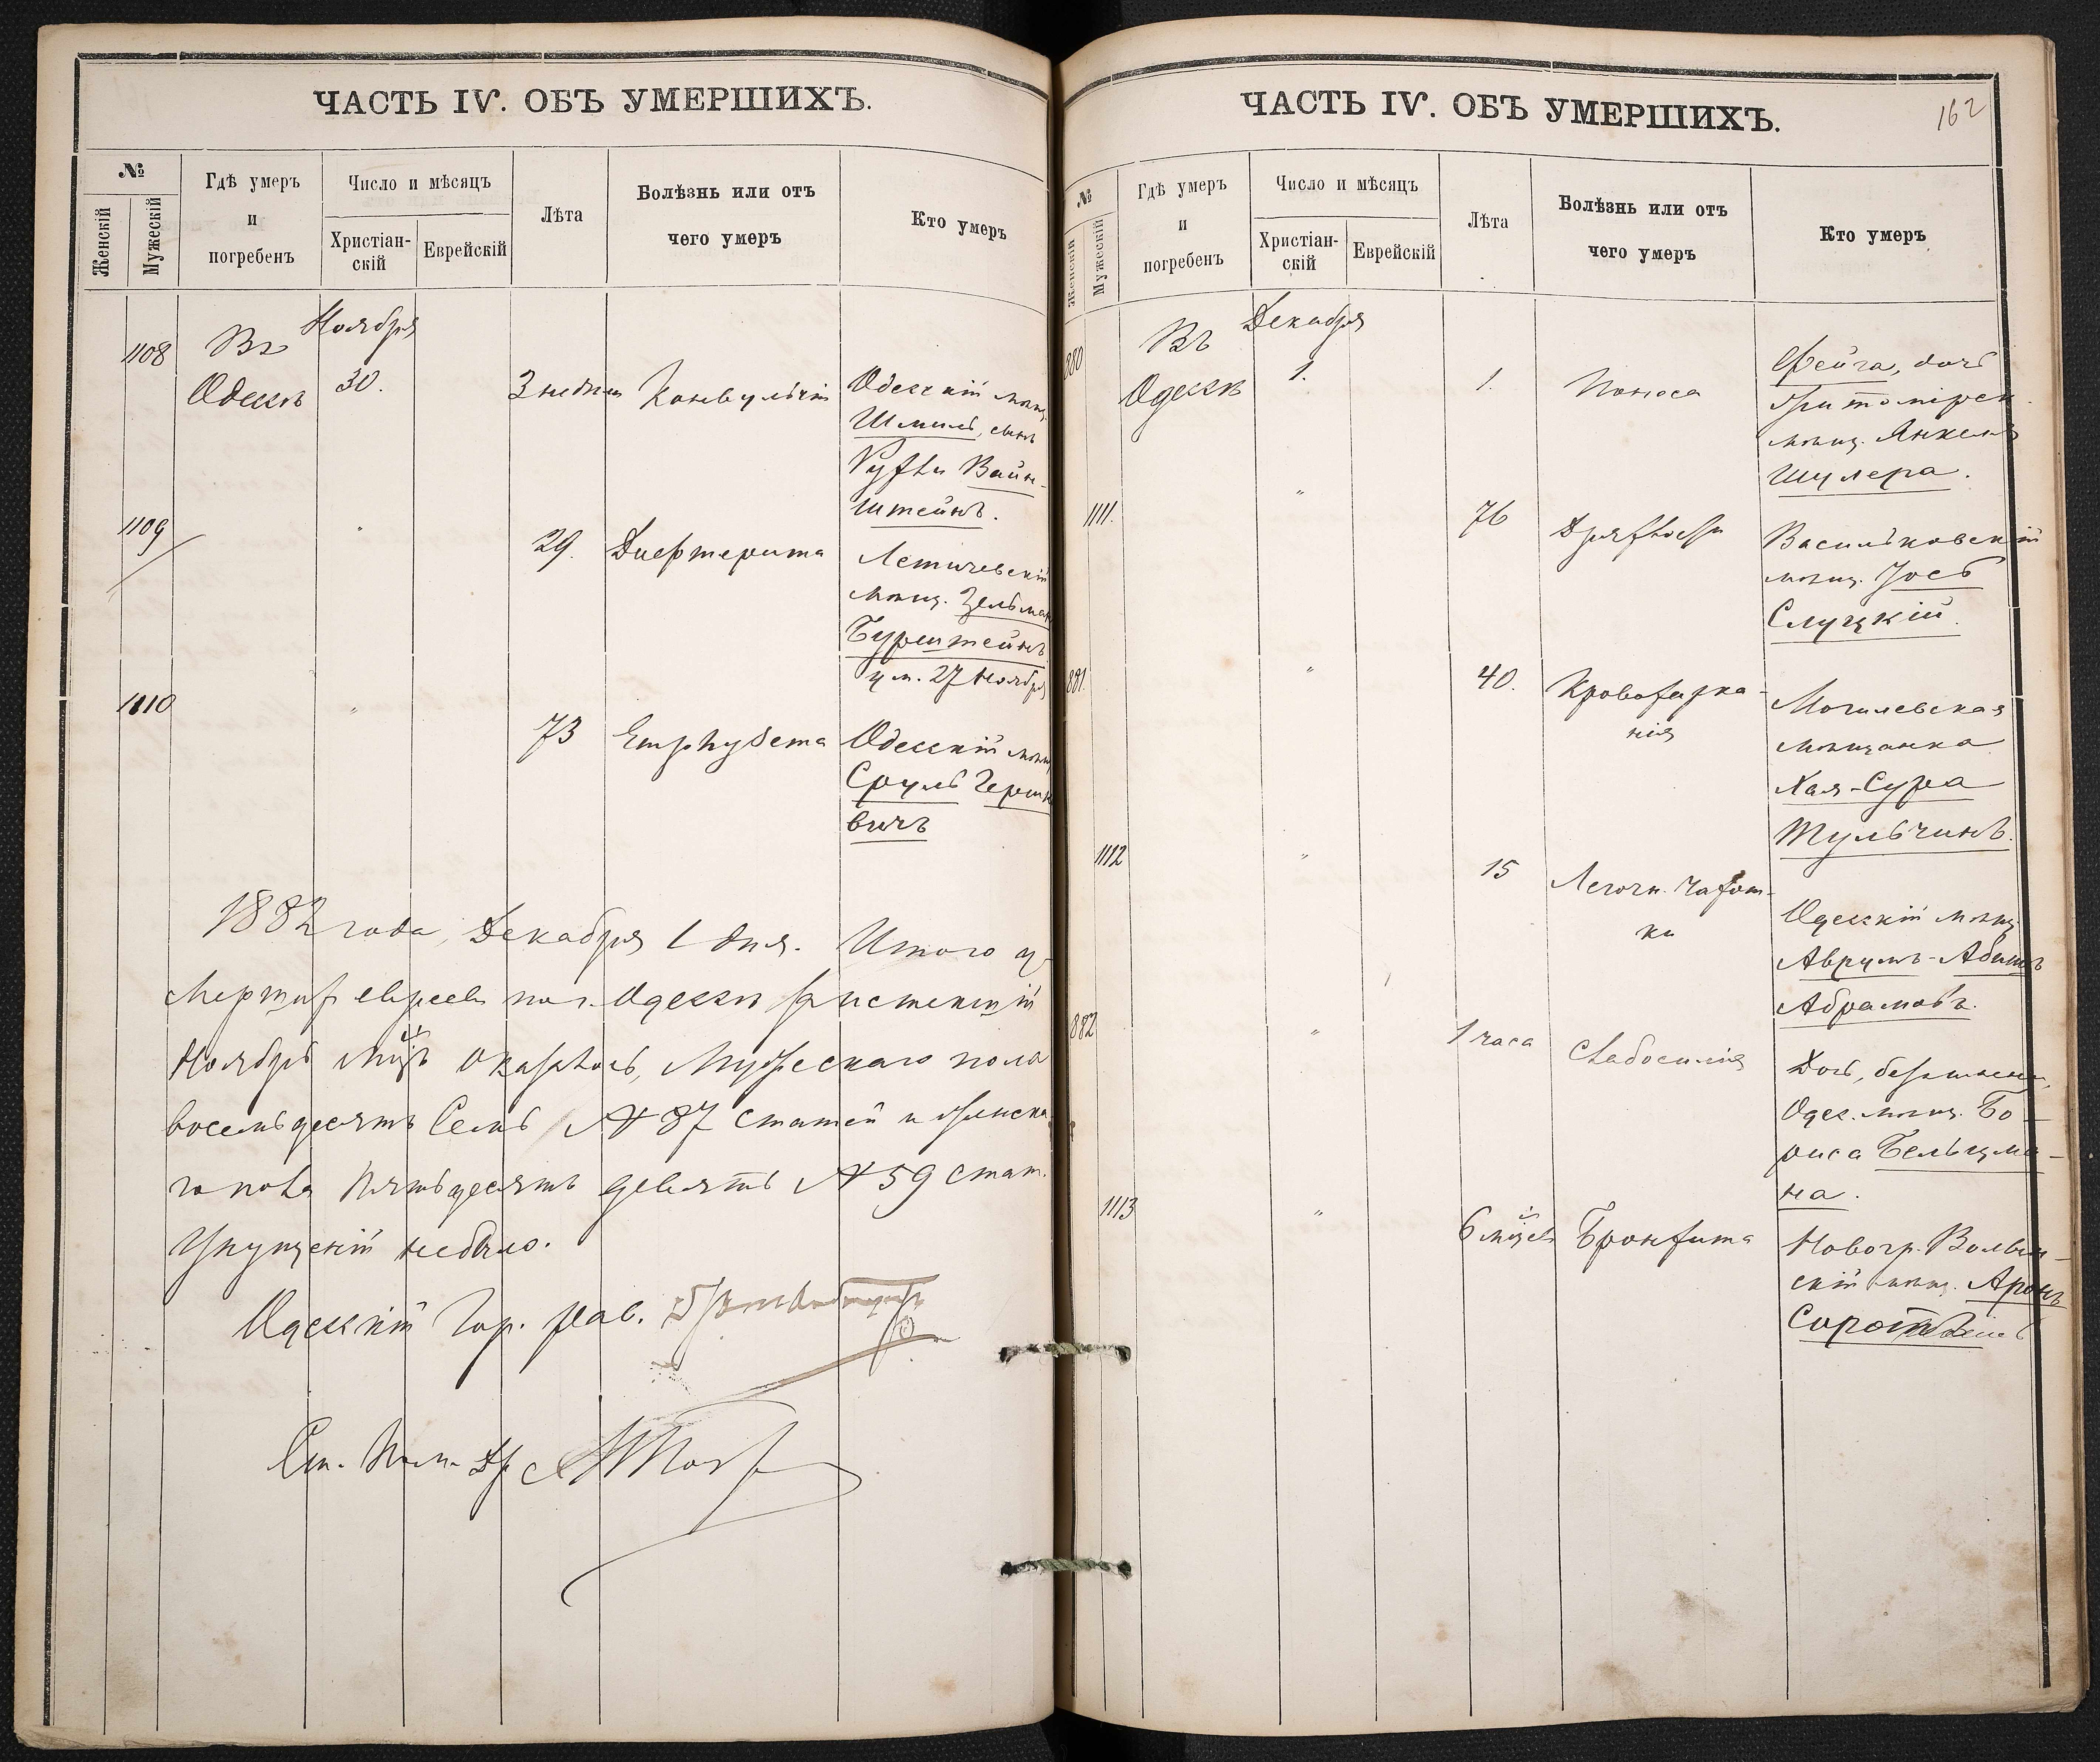 ЧАСТЬ IV. ОБЪ УМЕРШИХЪ.
№
Женскій
Мужескій
Гдѣ умеръ
и
погребенъ
Число и мѣсяцъ
Христіан-
скій
Еврейскій
Лѣта
Болѣзнь или отъ
чего умеръ
Кто умеръ
Ноября
1108
Въ
Одессѣ
30.
3 недѣли
Конвульсій
Одесскій мѣщ.
Шмиль, сынъ
Вайн-
штейнъ.
1109
"
29.
Дифтерита
Летичевскій
мѣщ. Зельманъ
Бурштейнъ
ум. 27 Ноября
1110
"
73
Emphysema
Одесскій мѣщ.
Сруль Герш
вичъ
1882 года, Декабря 1 дня. Итого у-
мершихъ евреевъ по г. Одессѣ за истекшій
Ноябрь м-цъ оказалось, Мужескаго пола
восемьдесятъ Семь № 87 статей и женска
го пола Пятьдесятъ девять № 59 стат.
Упущеній не было.
Одесскій Гор. Рав.
ЧАСТЬ IV. ОБЪ УМЕРШИХЪ.
162
№
Женскій
Мужескій
Гдѣ умеръ
и
погребенъ
Число и мѣсяцъ
Христіан-
скій
Еврейскій
Лѣта
Болѣзнь или отъ
чего умеръ
Кто умеръ
Декабря
880
Въ
Одессѣ
1.
1.
Поноса
Фейга, дочь
Житомірск.
мѣщ. Янкеля
Шулера.
1111.
"
76
Дряхлости
Васильковскій
мѣщ. Іось
Слуцкій.
881.
"
40.
Кровохарка-
нія
Могилевская
мѣщанка
Хая-Сура
Тульчинъ.
1112
"
15
Легочн. Чахот-
ки
Одесскій мѣщ.
Аврумъ-Абишъ
Абрамовъ.
882
"
1 часа
Слабосилія
Дочь, безъимен.
Одес. мѣщ. Бо-
риса Бельцма-
на.
1113
"
6 мѣсяц.
Бронхита
Новогр. Волын-
скій мѣщ. Аронъ